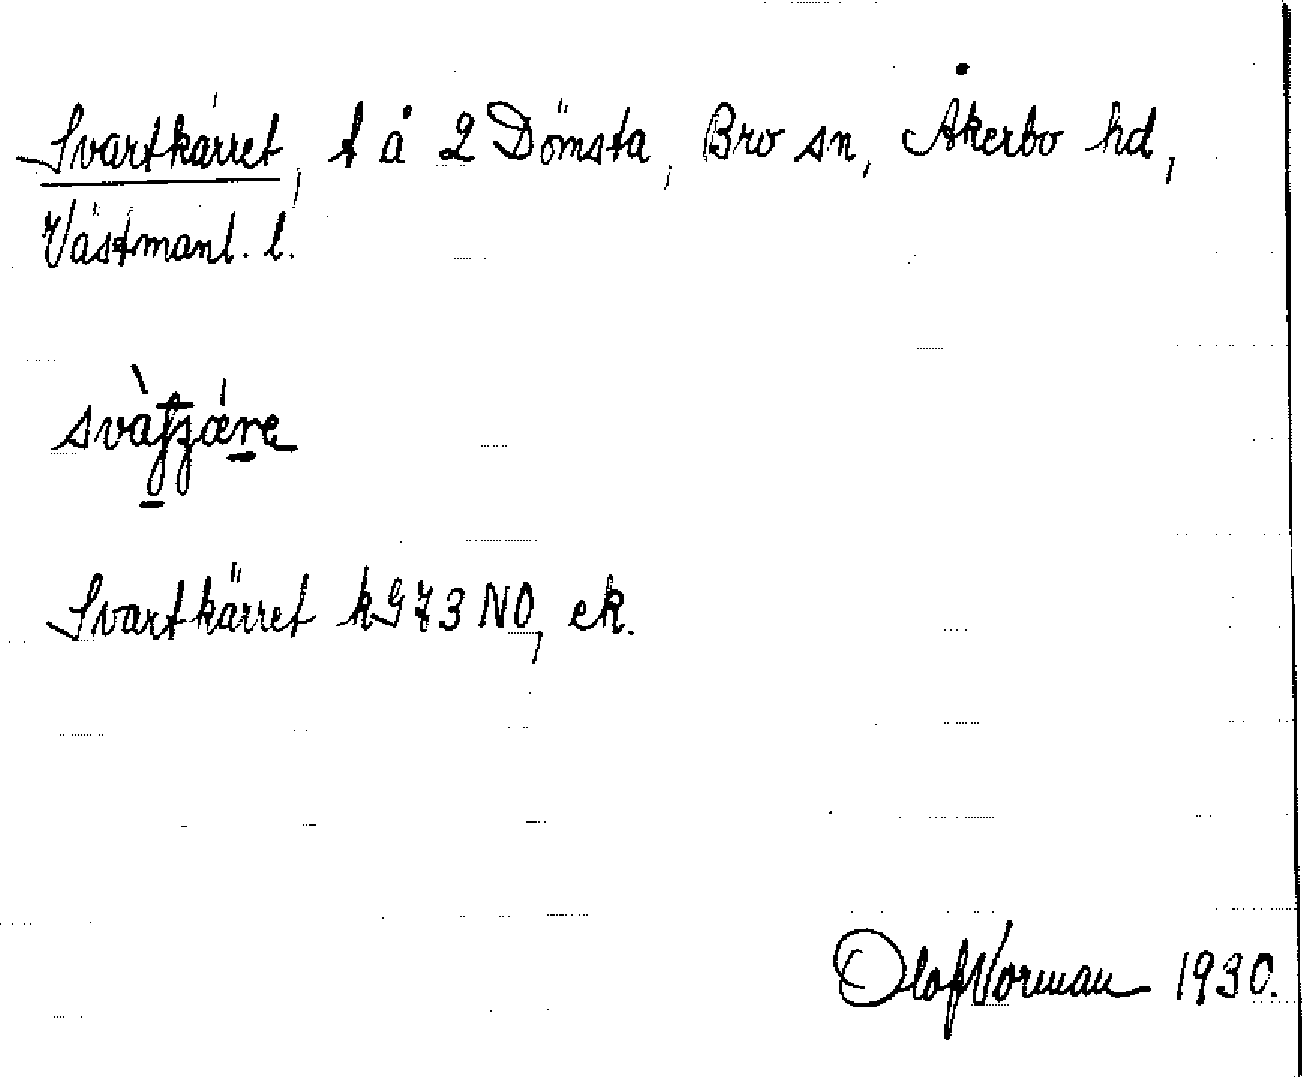 Svartkärret, t å 2 Dömsta, Bro sn, Åkerbo hd,
Västmanl. l.
Svartkärret kG73 NO, ek.
Olof Norman 1930.